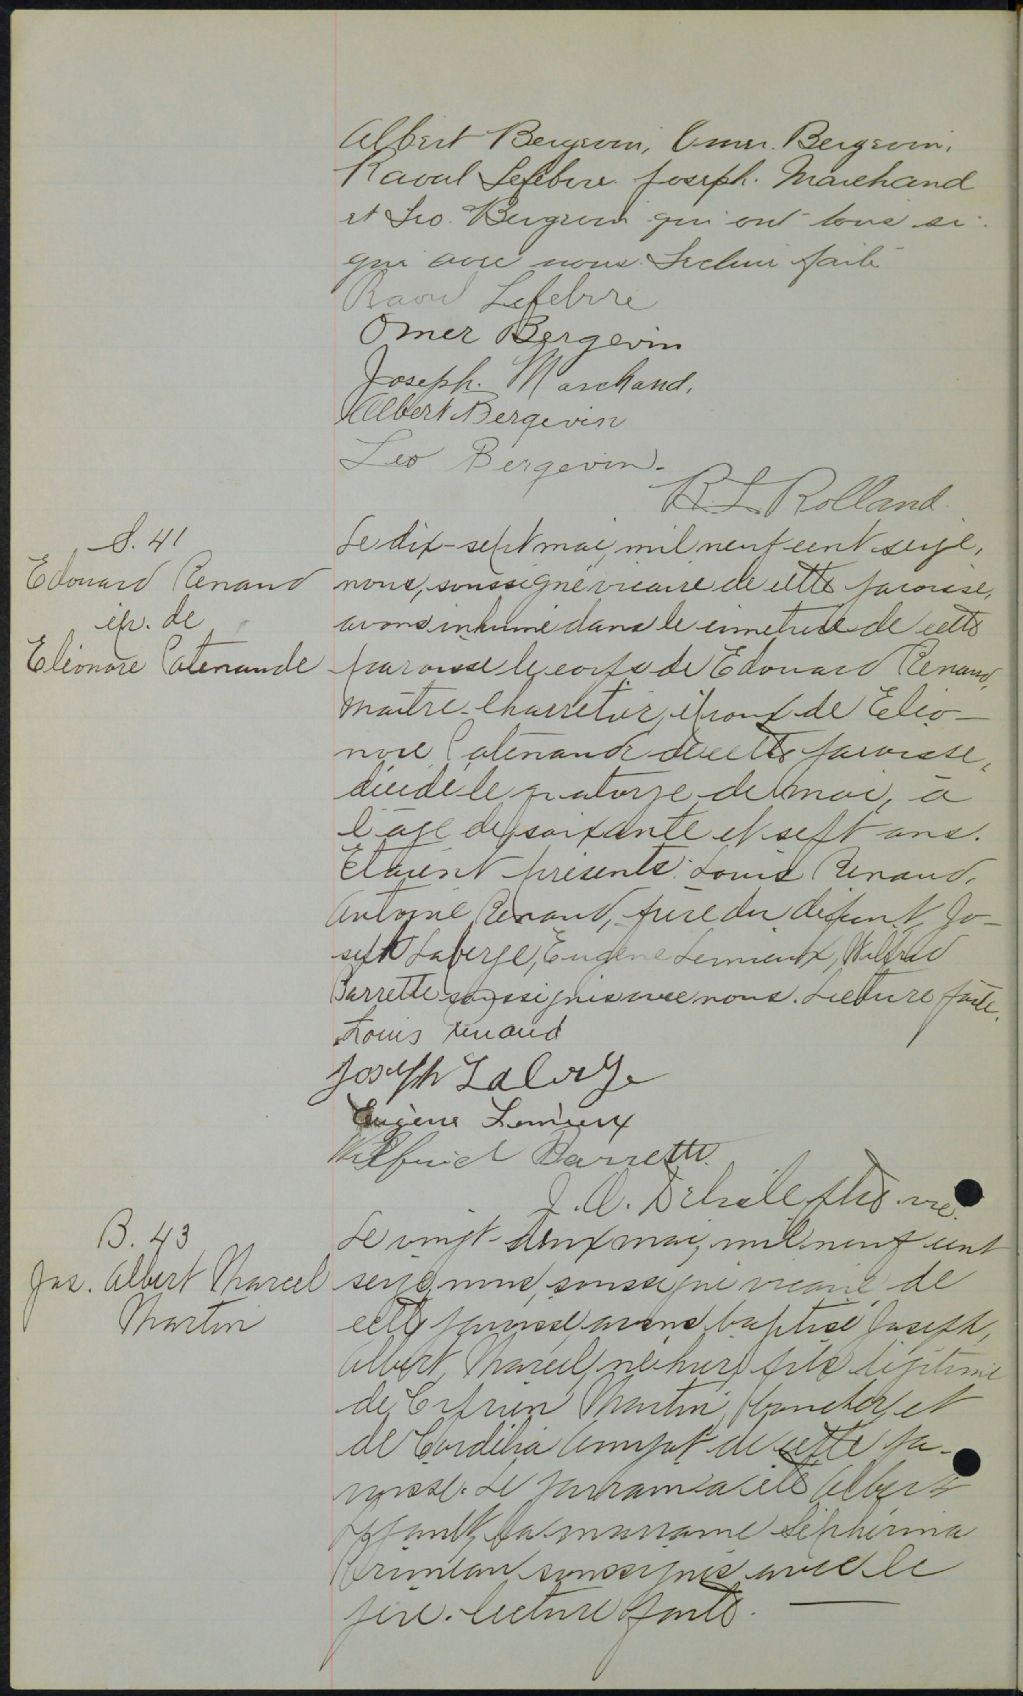 Albert Bergevin, Omer Bergevin,
Raoul Lefebvre Joseph. Marchand
et Leo Bergevin qui ont tous si-
gné avec nous. Lecture faite
Raoul Lefebvre
Omer Bergevin
Joseph. Marchand.
Albert Bergevin
Leo Bergevin.
R. L. Rolland.
S. 41
Edouard Renaud
ép. de
Eléonore Patenaude
Le dix-sept mai, mil neuf cent seize,
nous, soussigné vicaire de cette paroisse,
avons inhumé dans le cimetière de cette
paroisse le corps de Edouard Renaud,
maître-charretier, époux de Eléo-
nore Patenaude de cette paroisse,
décédé le quatorze de mai, à
l'âge de soixante et sept ans.
Etaient présents: Louis Renaud,
Antoine Renaud, frère du défunt, Jo-
seph Laberge, Eugène Lemieux, Wilfrid
Barrette soussignés avec nous. Lecture faite.
Louis Renaud
Joseph Laberge
Eugène Lemieux
Wilfrid Barrette.
J. A. Delisle ptre vic.
B. 43
Jos. Albert Marcel
Martin
Le vingt-deux mai, mil neuf cent
seize, nous, soussigné vicaire de
cette paroisse avons baptisé Joseph,
Albert, Marcel, né hier, fils légitime
de Cyprien Martin, boucher, et
de Cordélia de cette pa-
roisse. Le parrain a été Albert
la marraine Séphérina
Primeau soussignés avec le
père. Lecture faite.